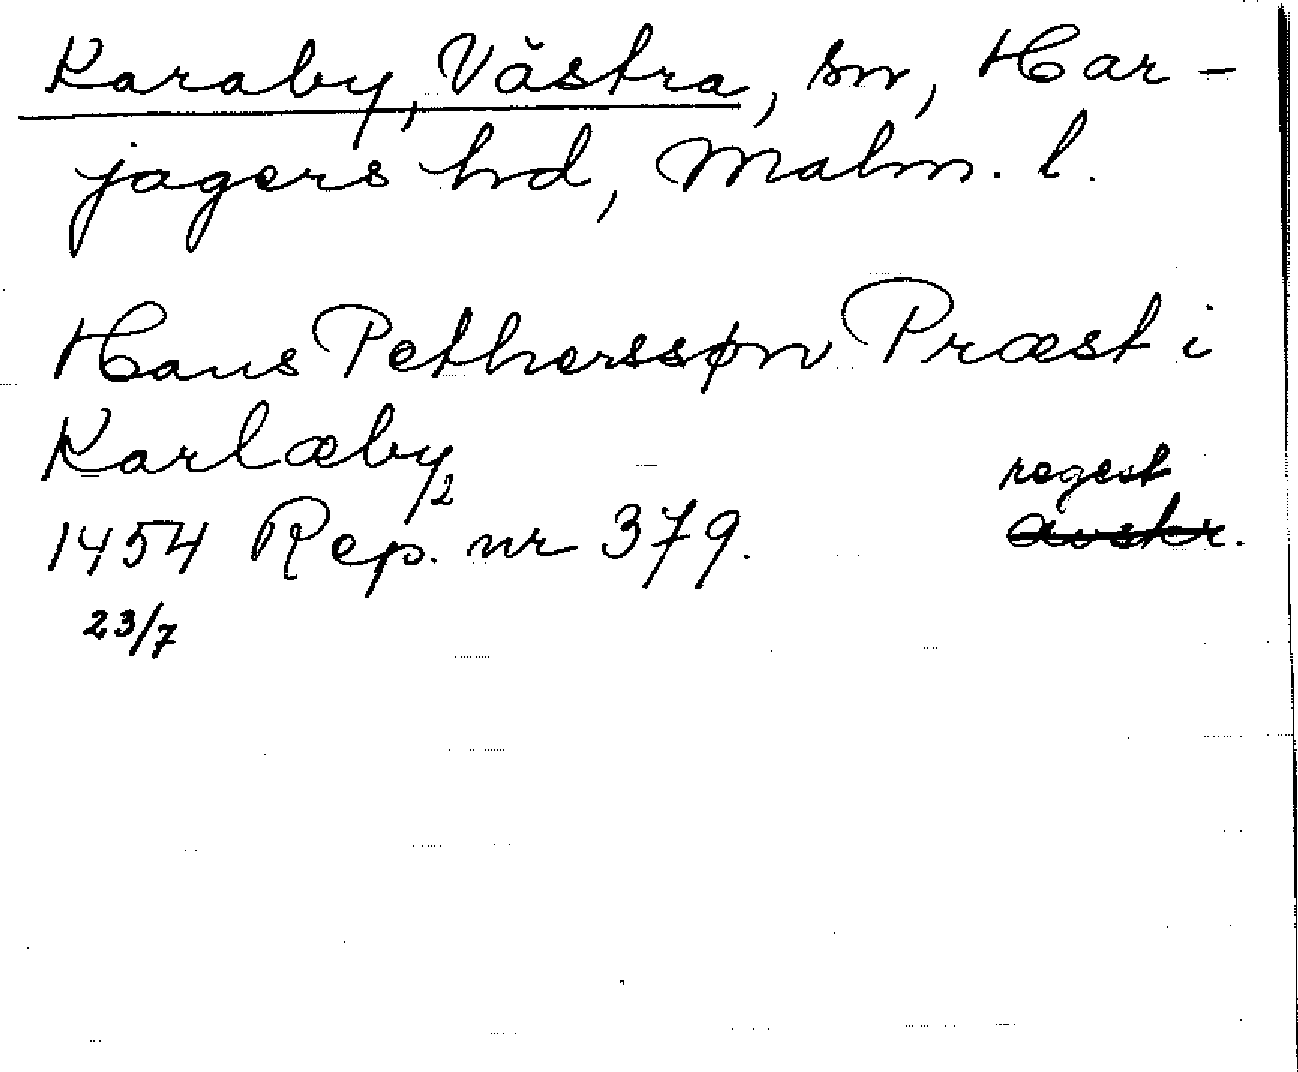 Karaby, Västra, sn, Har-
jagers hd, Malm. l.
Hans Petherssøn Præst i
Karlæby
1454 Rep. 2 nr 379. regest
avskr.
23/7